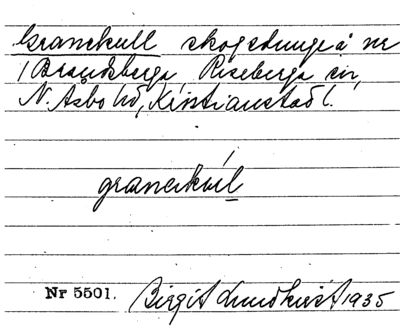 Granekull skogsdunge å nr
1 Brandsberga, Riseberga sn,
N. Åsbo hd, Kristianstads l.
granekúl
Nr 5501. Birgit Lundkvist 1935